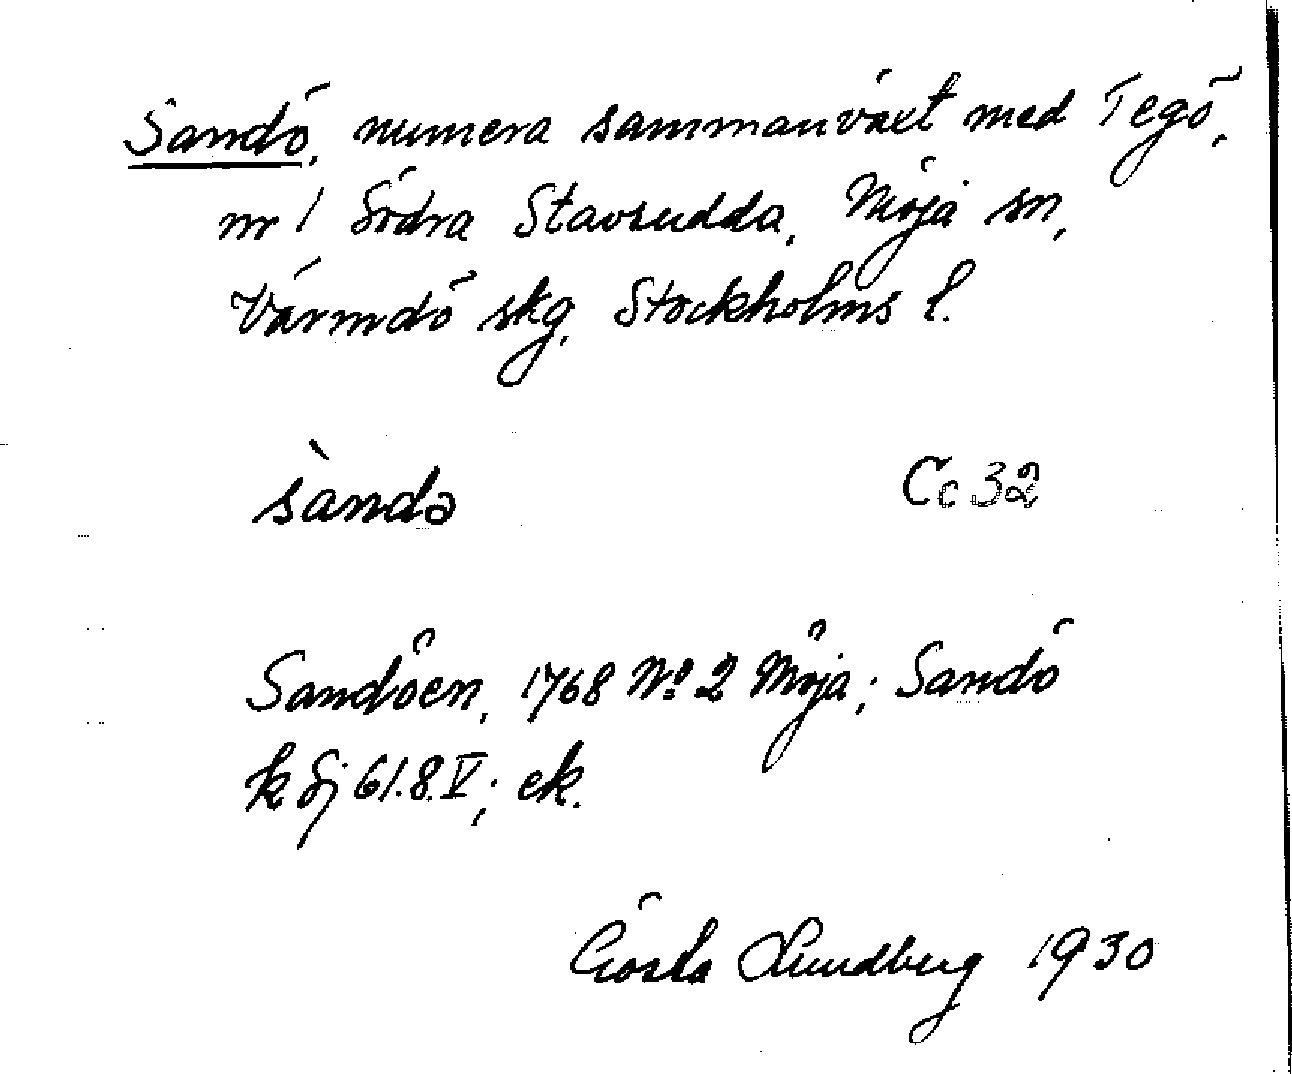 Sandö, numera sammanväxt med Tegö,
nr 1 Södra Stavsudda, Möja sn,
Värmdö skg, Stockholms l.
sàndə Cc 32
Sandöen, 1768 No 2 Möja; Sandö
k Sj 61.8.V; ek.
Gösta Lundberg 1930